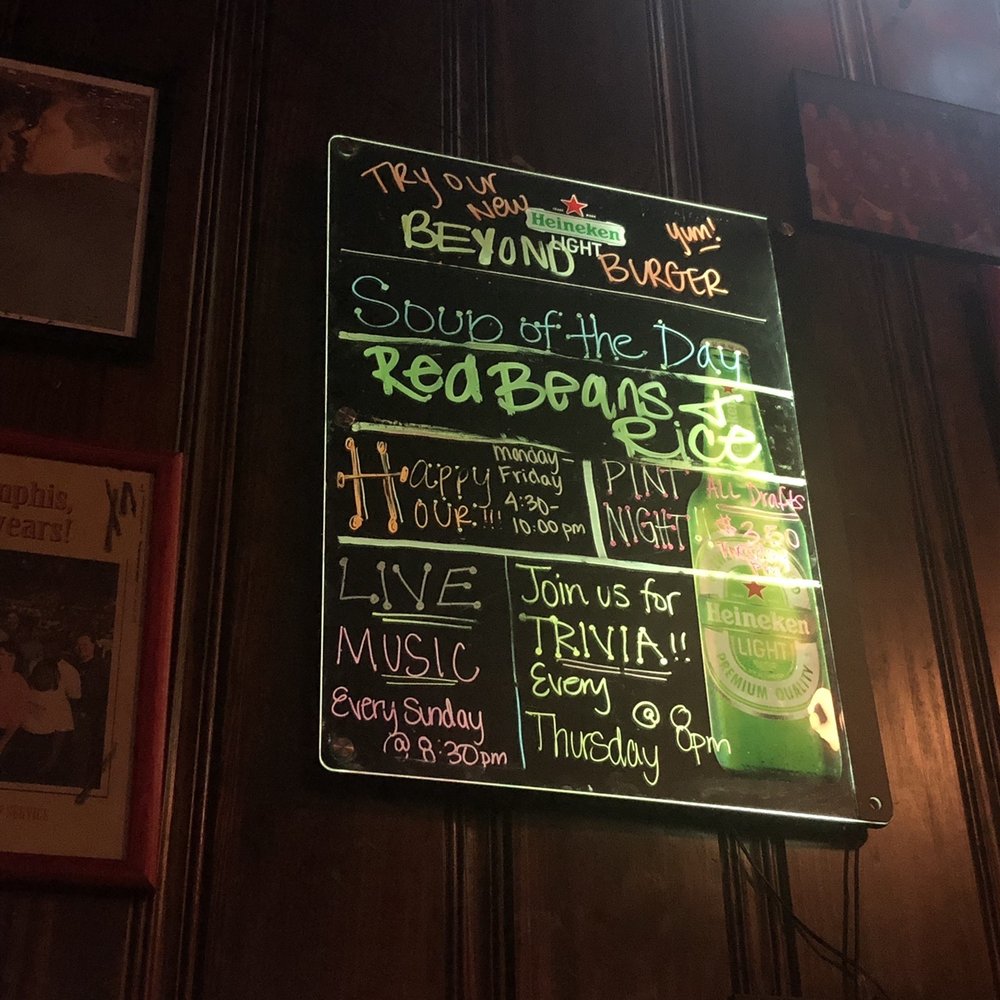 TRY OUR
NEW
Heineken
LIGHT
yum!
BEYOND BURGER
Soup of the Day
Red Beans &
Rice
Happy
HOUR!!!
Monday-
Friday
4:30-
10:00pm
PINT
NIGHT!!
ALL Drafts
$3.50
LIVE
MUSIC
Every Sunday
@ 8:30pm
Join us for
TRIVIA!!
Every
Thursday
@ 8pm
Heineken
LIGHT
PREMIUM QUALITY
mphis,
years!
SERVICE